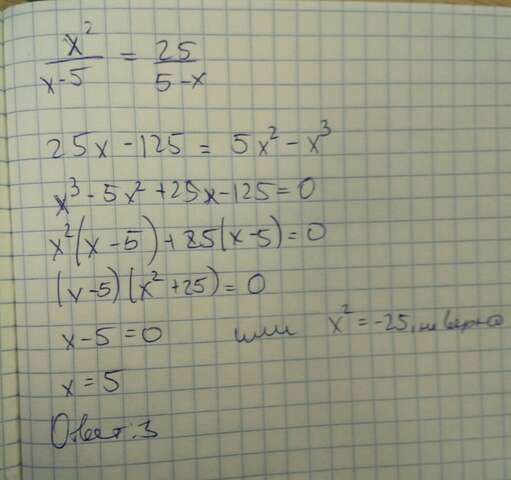 x²/(x-5) = 25/(5-x)
25x - 125 = 5x² - x³
x³ - 5x² + 25x - 125 = 0
x²(x - 5) + 25(x - 5) = 0
(x - 5)(x² + 25) = 0
x - 5 = 0 или x² = -25, неверно
x = 5
Ответ: 3